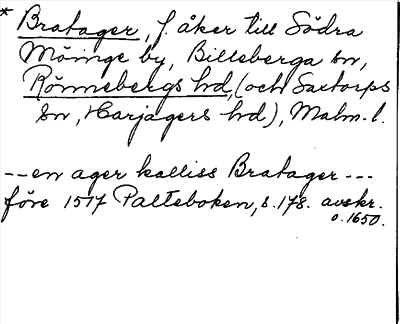 * Bratager, f. åker till Södra
Möinge by, Billeberga sn,
Rönnebergs hd, (och Saxtorps
sn, Harjagers hd), Malm. l.
-- en ager kalliss Bratager ---
före 1517 Palteboken, s. 178. avskr.
o. 1650.